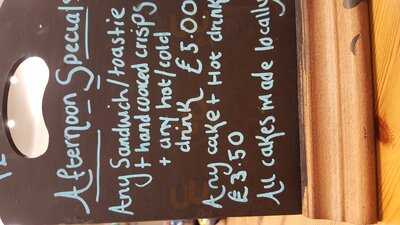 Afternoon Specials
Any Sandwich/toastie
+ hand cooked crisps
+ any hot/cold
drink £5.00
Any cake + Hot drink
£3.50
All cakes made locally